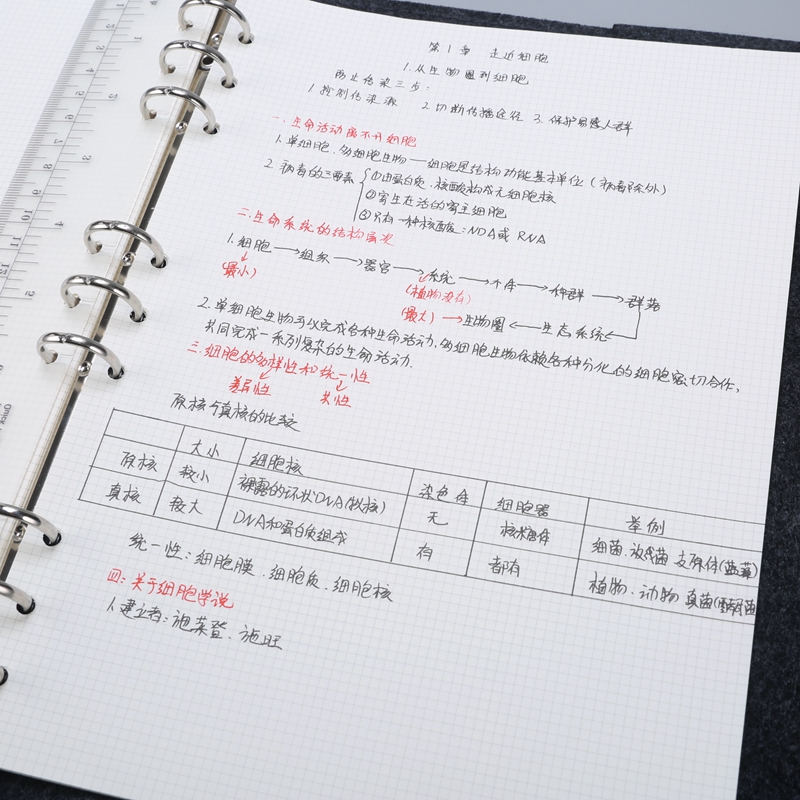 第1章 走近细胞
1.从生物圈到细胞
防止传染三步:
1.控制传染源 2.切断传播途径 3.保护易感人群
一.生命活动离不开细胞
1.单细胞、多细胞生物——细胞是结构功能基本单位(病毒除外)
2.病毒的三要素
①由蛋白质.核酸构成无细胞核
②寄生在活的寄主细胞
③只有一种核酸:NDA或RNA
二.生命系统的结构层次
1.细胞→组织→器官→系统→个体→种群→群落
(最小) (植物没有)
(最大)→生物圈←生态系统
2.单细胞生物可以完成各种生命活动,多细胞生物依赖各种分化的细胞密切合作,
共同完成一系列复杂的生命活动.
三.细胞的多样性和统一性
差异性 共性
原核与真核的比较
大小 细胞核 染色体 细胞器 举例
原核 较小 裸露的环状DNA(拟核) 无 核糖体 细菌.放线菌 支原体(蓝藻)
真核 较大 DNA和蛋白质组成 有 都有 植物.动物 真菌(酵母菌
统一性:细胞膜.细胞质.细胞核
四:关于细胞学说
1.建立者:施莱登.施旺